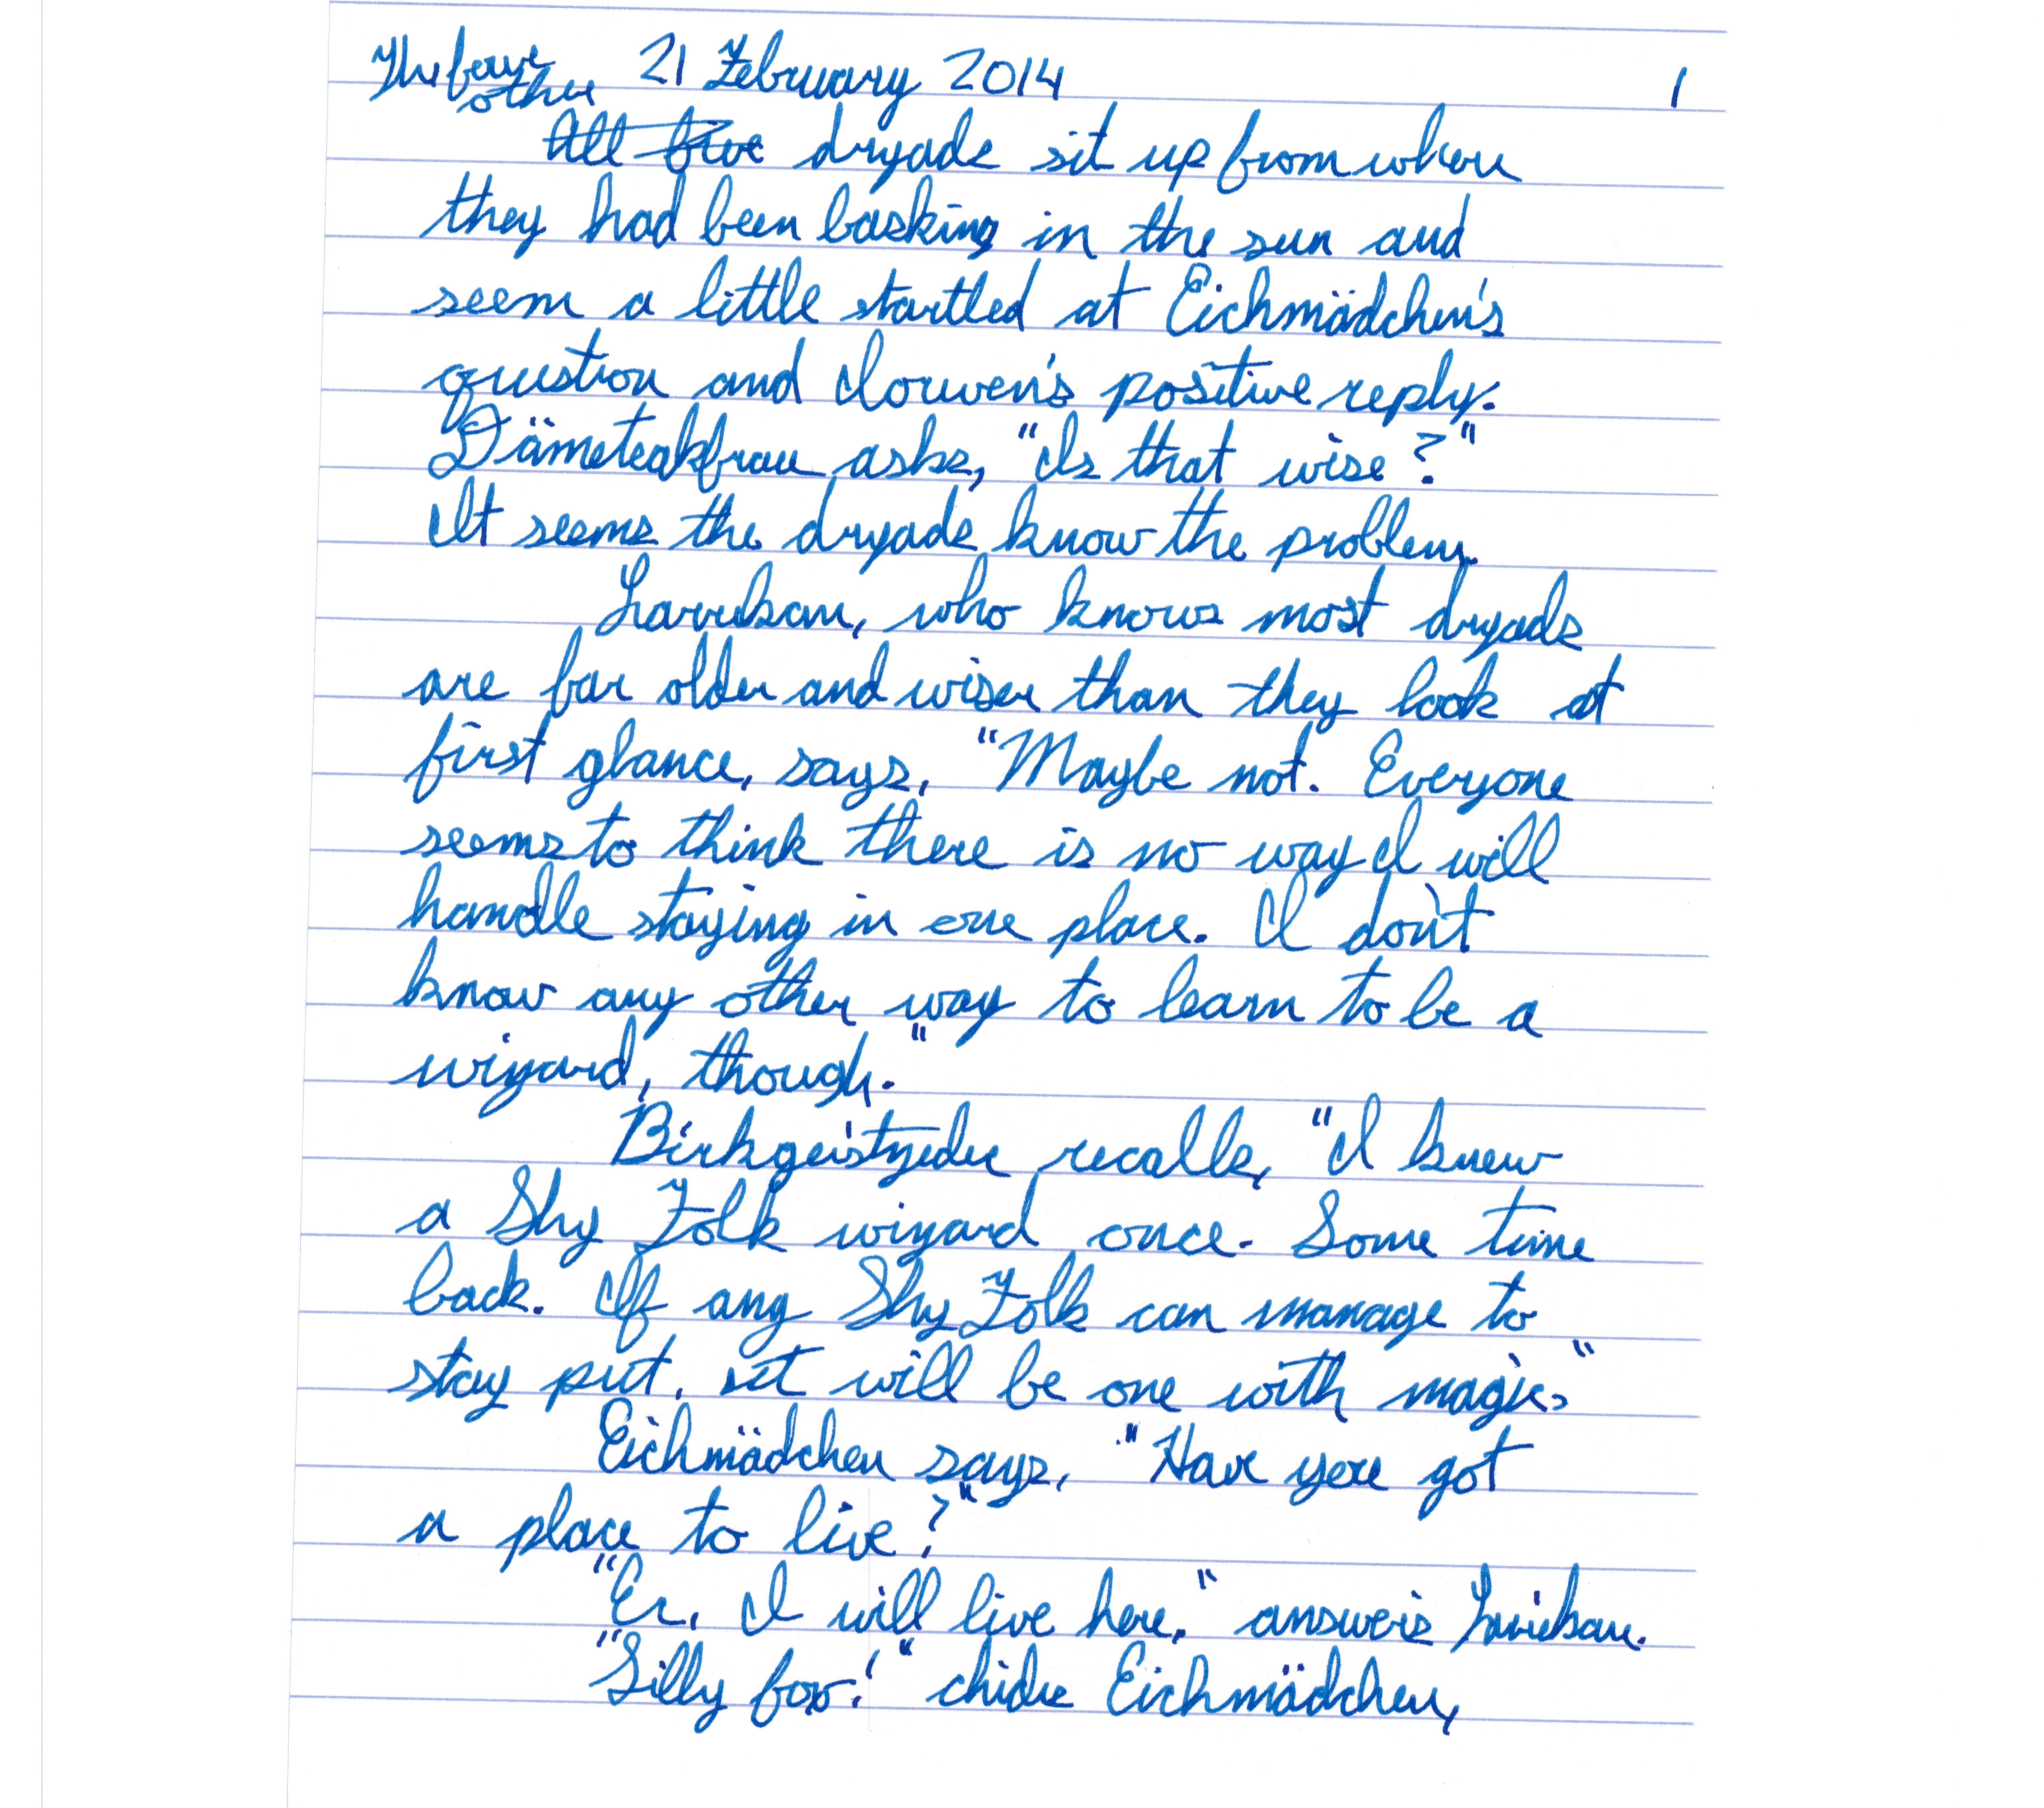 The four 21 February 2014 1
other
All five dryads sit up from where
they had been basking in the sun and
seem a little startled at Eichmädchen's
question and Iorwen's positive reply.
Dämeteakfrau asks, "Is that wise?"
It seems the dryads know the problem.
who knows most dryads
are far older and wiser than they look at
first glance, says, "Maybe not. Everyone
seems to think there is no way I will
handle staying in one place. I don't
know any other way to learn to be a
wizard, though."
recalls, "I knew
a Shy Folk wizard once. Some time
back. If any Shy Folk can manage to
stay put, it will be one with magic."
Eichmädchen says, "Have you got
a place to live?"
"Er, I will live here," answers
"Silly fox!" chides Eichmädchen,